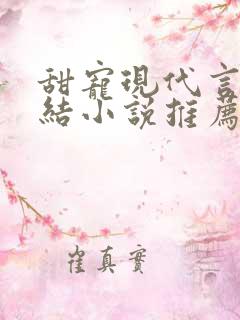 甜寵現代言
結小說推薦
崔真實